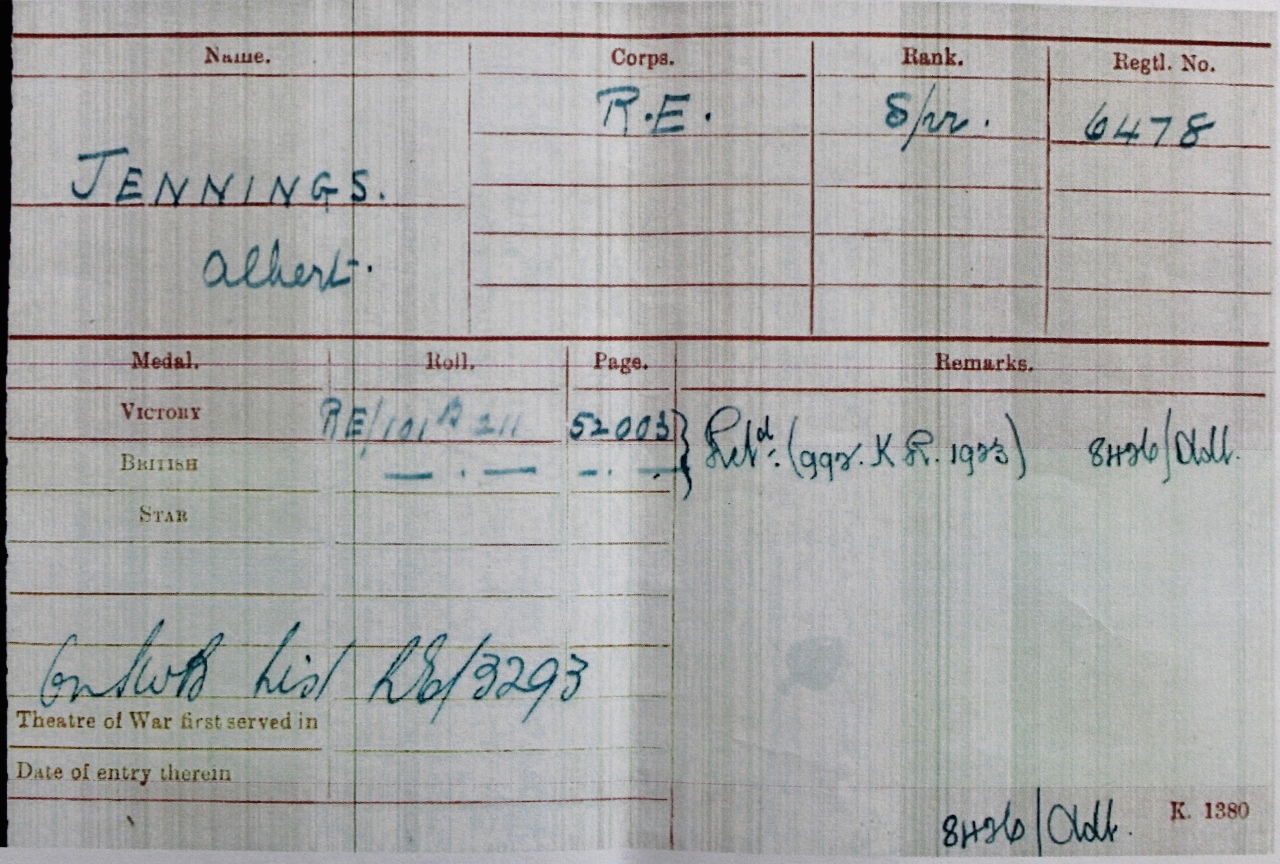 Name. Corps. Rank. Regtl. No.
R.E. Spr. 6478
JENNINGS.
Albert.
Medal. Roll. Page. Remarks.
VICTORY RE/101 B 211 52003 } Retd. (992. K R. 1923) 8426/Adt.
BRITISH — . — — . —
STAR
On SWB List RE/3293
Theatre of War first served in
Date of entry therein
K. 1380
8426/Adt.